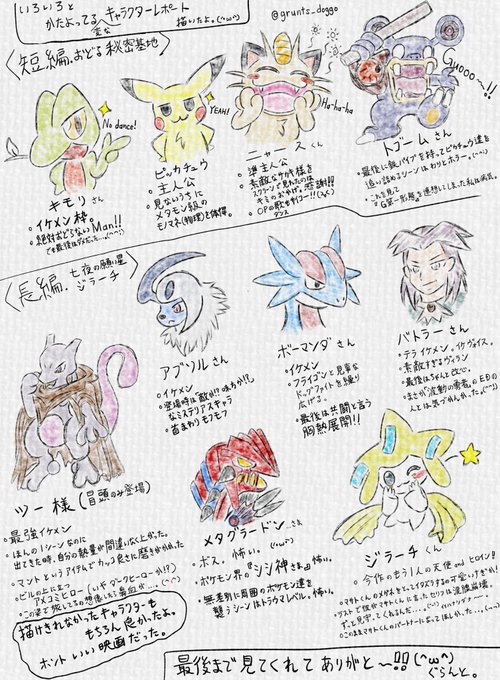 いろいろと
かたよってる キャラクターレポート
変な
描いたよ。(^ω^)
@grunts_doggo
〈短編.おどる秘密基地〉
No dance!
キモリさん
・イケメン枠。
・絶対おどらないMan!!
YEAH!
ピカチュウ
・主人公
・見ないうちに
メタモン級の
モノマネ(物理)を体得。
Ha-ha-ha
ニャースくん
・準主人公
・素敵なケガ様を
スクリーンで見れたのは
キミのおかげ。感謝!!
Guooo~!!
トゴームさん
・最後に鉄パイプを持ってピカチュウ達を
追い詰めるシーンはわりとホラー。
〈長編.七夜の願い星
ジラーチ〉
アブソルさん
・イケメン
・登場時は敵か!?味方か!?
なミステリアスキャラ
・首まわりモフモフ
ボーマンダさん
・イケメン
・フライゴンと見事な
ドッグファイトを繰り
広げる。
・最後は共闘と言う
胸熱展開!!
バトラーさん
・テライケメン。イケヴォイス。
・素敵すぎるヴィラン
・最後はちゃんと改心。
・まさか「波動の勇者」のEDの
人とは気づかんかった。
ツー様(冒頭のみ登場)
・最強イケメン
・ほんの1シーンなのに
出てきた時、自分の熱量が間違いなく上がった。
・マントというアイテムでカッコ良さに磨きがかかった
・ビルの上に立つ
アメコミヒーロー(いやダークヒーローか!?)
メタグラードンさん
・ボス。怖い。
・ポケモン界の『シシ神さま』。怖い。
・無差別に周囲のポケモン達を
襲うシーンはトラウマレベル。怖い。
ジラーチくん
・今作のもう1人の天使andヒロイン!!
・マサトくんのメガネをとってイタズラするの可愛いすぎか!
・ラストで彼がマサトくんに言ったセリフは涙腺崩壊。
描けきれなかったキャラクターも
もちろん良かったよ。
ホントいい映画だった。
最後まで見てくれてありがと~!!(^ω^)
ぐらんと。